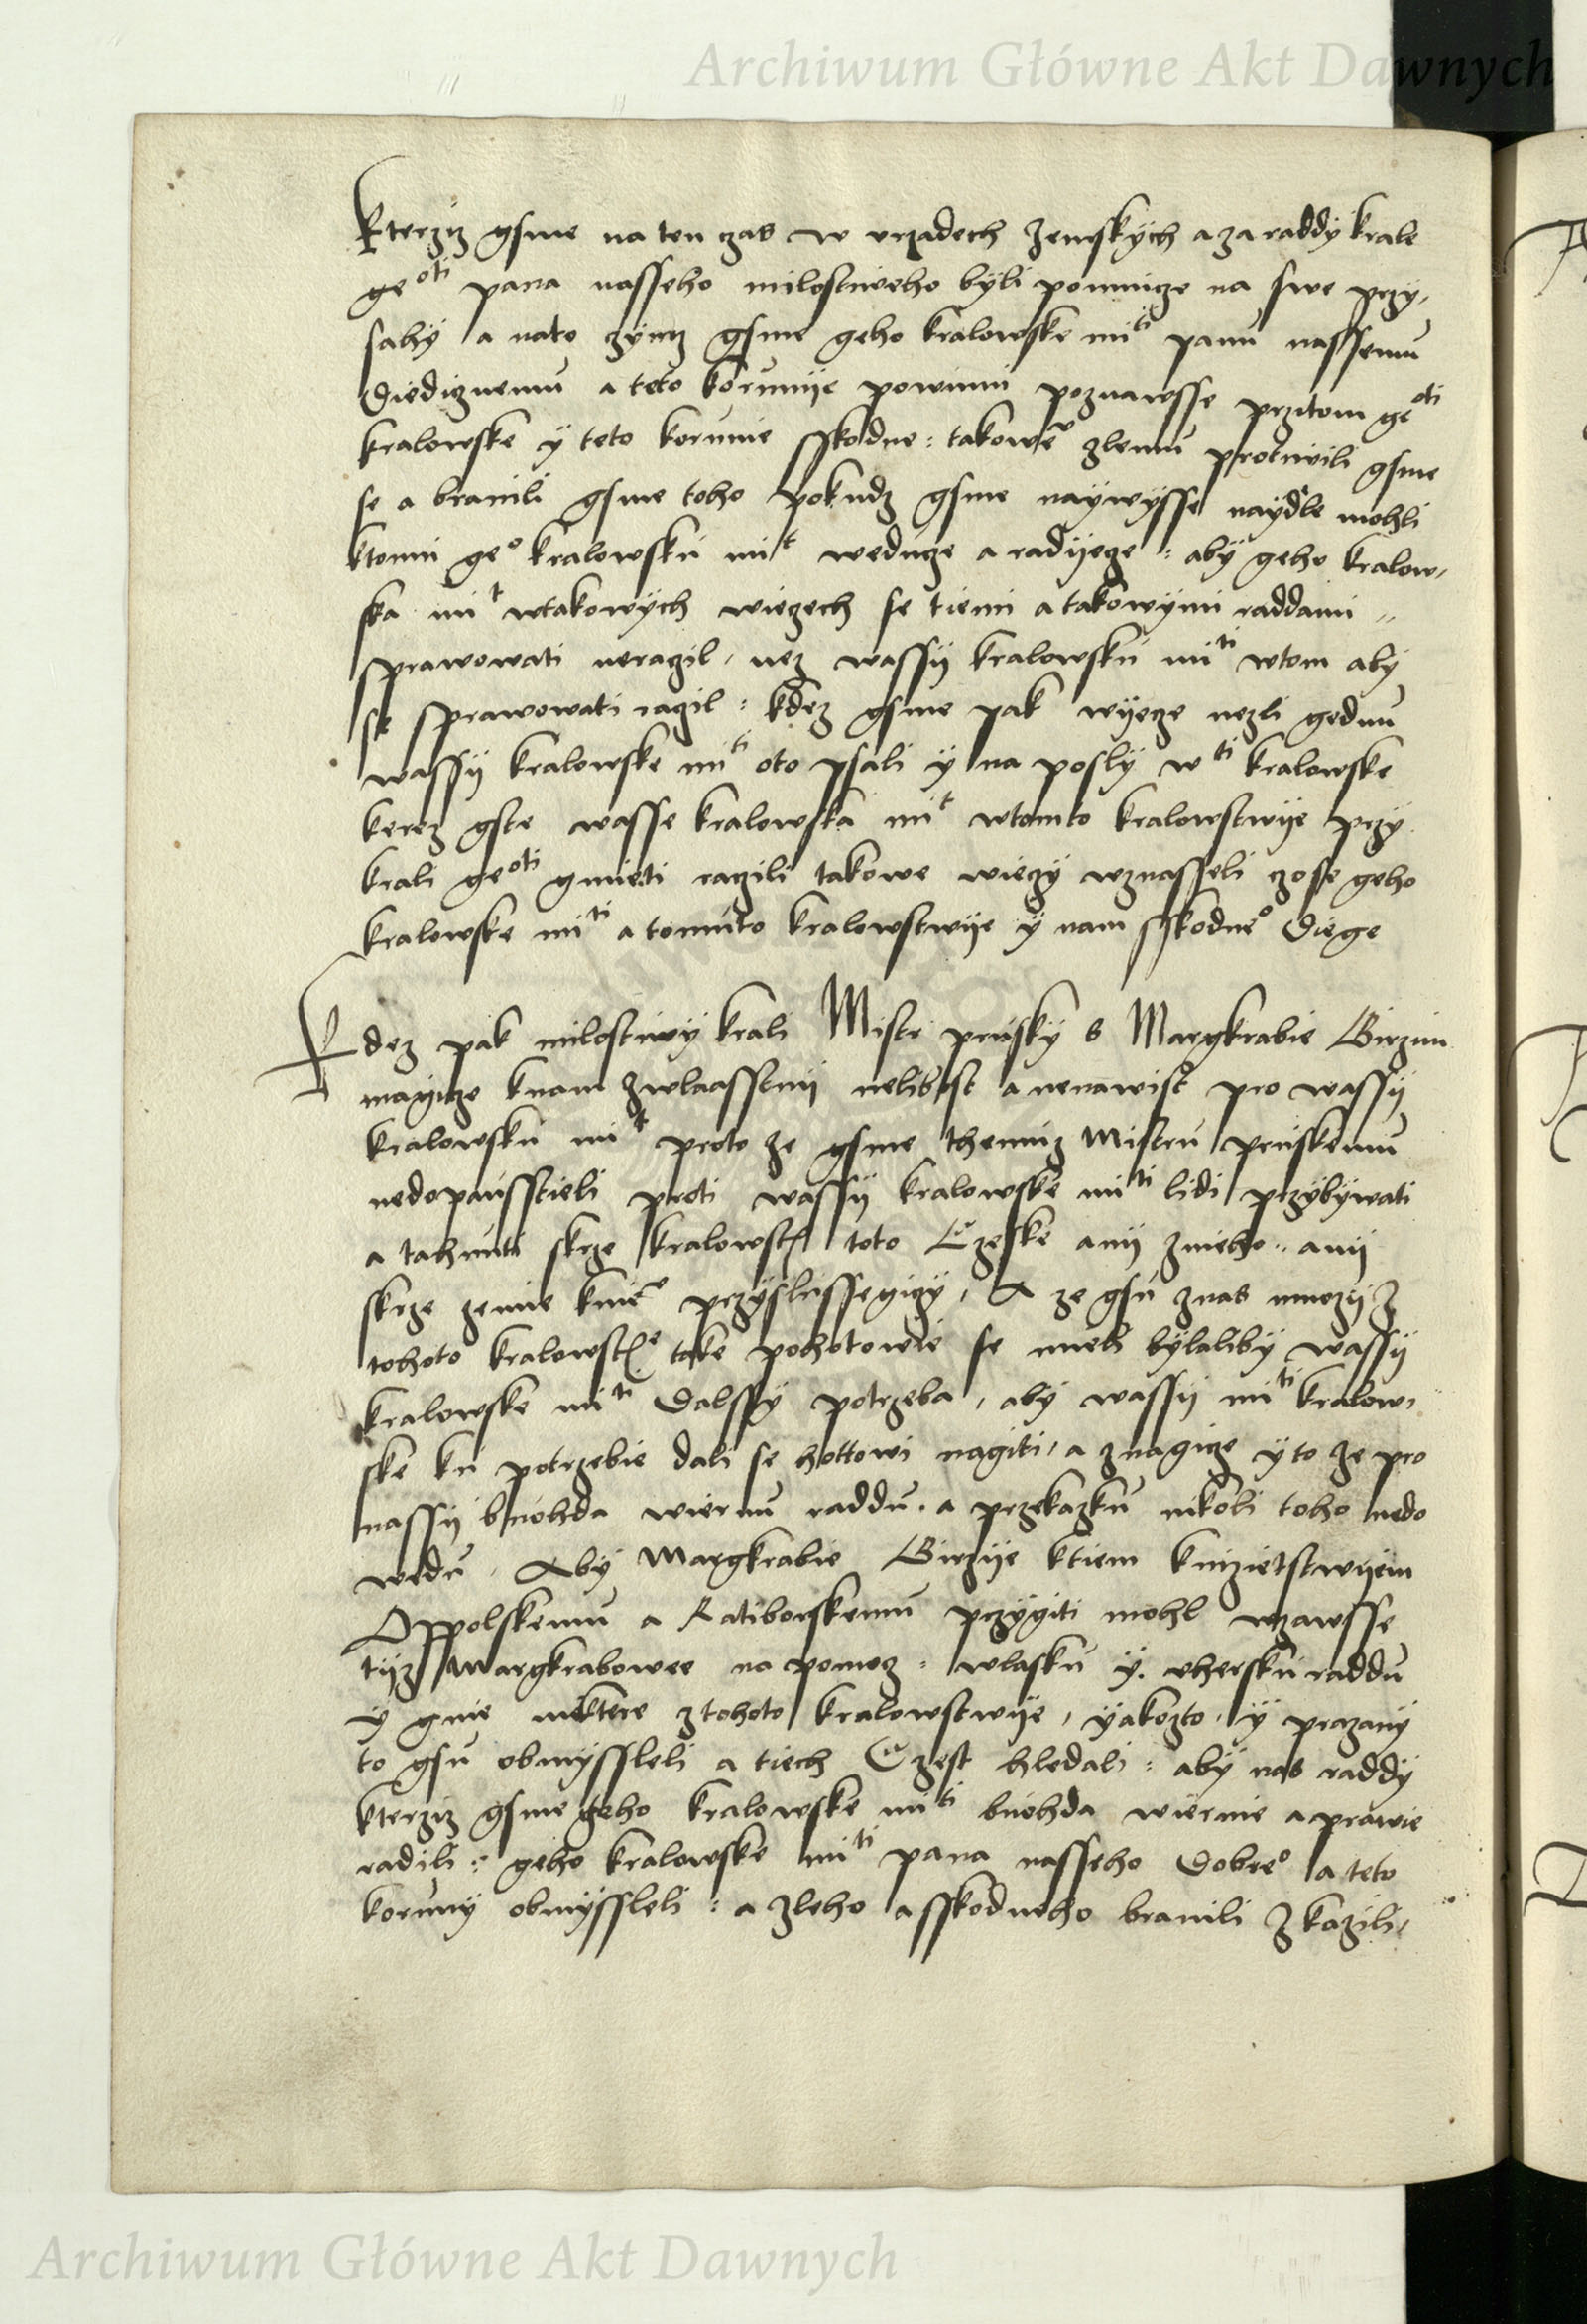 Archiwum Główne Akt Dawnych
Kterziz gsme na ten czas w vrzadech zemskych a za raddy krale
geoti pana nasseho milostiweho byli pomnicze na swe przy,
sahy a nato czymz gsme geho kralowske mti panu nassemu
diediznemu a teto korunije powinni poznawsse przitom geoti
kralowske y teto korunie sskodne : takoweo zlemu protiwili gsme
se a branili gsme toho pokudz gsme naywysse naydele mohli
ktomu geo kralowsku mt weducze a radijcze : aby geho kralow,
ska mt wtakowych wieczech se tiemi a takowymi raddami
sprawowati neraczil, nez wassij kralowsku mti wtom aby
se sprawowati raczil : kdez gsme pak wijcze nezli gednu
wassij kralowske mti oto psali y na posly wti kralowske
kerez gste wasse kralowska mt wtomto kralowstwije przy
krali geoti gmieti raczili takowe wieczy wznasseli czo se geho
kralowske mti a tomuto kralowstwije y nam sskodneo diege
Kdez pak milostiwy krali Mistr prusky s Margkrabie Girzim
magicze knam zwlaasstnij nelibost a nenawist pro wassij
kralowsku mt proto ze gsme themuz Mistru pruskemu
nedopausstieli proti wassij kralowske mti lidi przybywati
a tahnuti skrze kralowst toto Czeske anij znieho anij
skrze zemie knieo przyslussegiczy, A ze gsu znas mnozij z
tohoto kralowste take pohotowie se mieli bylaliby wassij
kralowske mti dalssy potrzeba, aby wassij mti kralow,
ske ku potrzebie dali se hottowi nagiti, a znagicze y to ze pro
nassij buohda wiernu raddu a przekazku nikoli toho nedo
wedu, Aby Margkrabie Girzije ktiem knizietstwijem
Oppolskemu a Ratiborskemu przygiti mohl wzawsse
tijz Margkrabowee na pomoc : wlasku y. vhersku raddu
y gine niektere ztohoto kralowstwije, yakozto, y prazany
to gsu obmyssleli a tiech Czest hledali : aby nas raddy
kterziz gsme geho kralowske mti buohda wiernie a prawie
radili : geho kralowske mti pana nasseho dobreo a teto
koruny obmyssleli : a zleho a sskodneho branili zkazili,
Archiwum Główne Akt Dawnych